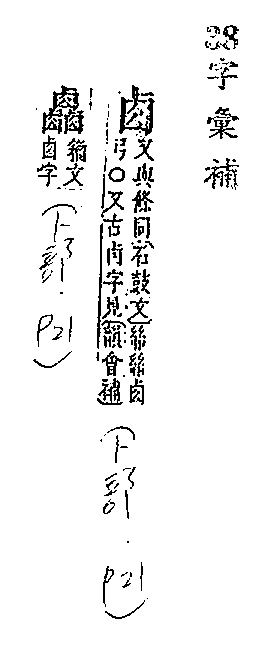 38字彙補
卤又與條同石鼓文絲絲卤
弓〇又古卣字見韻會補
(卜部．P21)
𠧪籀文
卣字
(卜部．P21)